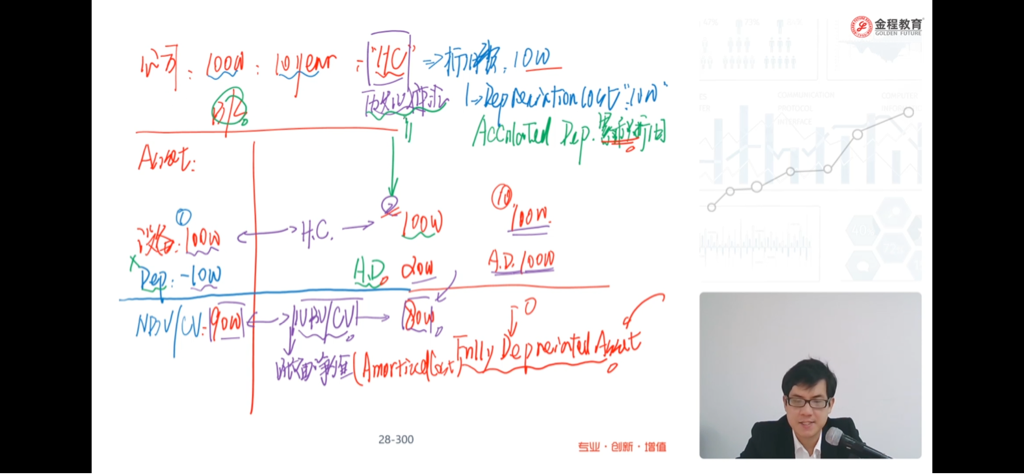 金程教育
GOLDEN FUTURE
公司: 100W: 10year = "HC" => 折旧费: 10W
历史成本
Depreciation Cost: "10W"
B/S
Dep. 累计折旧
Asset:
① ② ⑩
设备: 100W H.C. 100W 100W.
Dep: -10W A.D. 20W A.D. 100W
NBV/CV: 90W NBV/CV 80W 0
账面净值 (Amortized Cost) Fully Depreciated Asset
28-300
专业·创新·增值